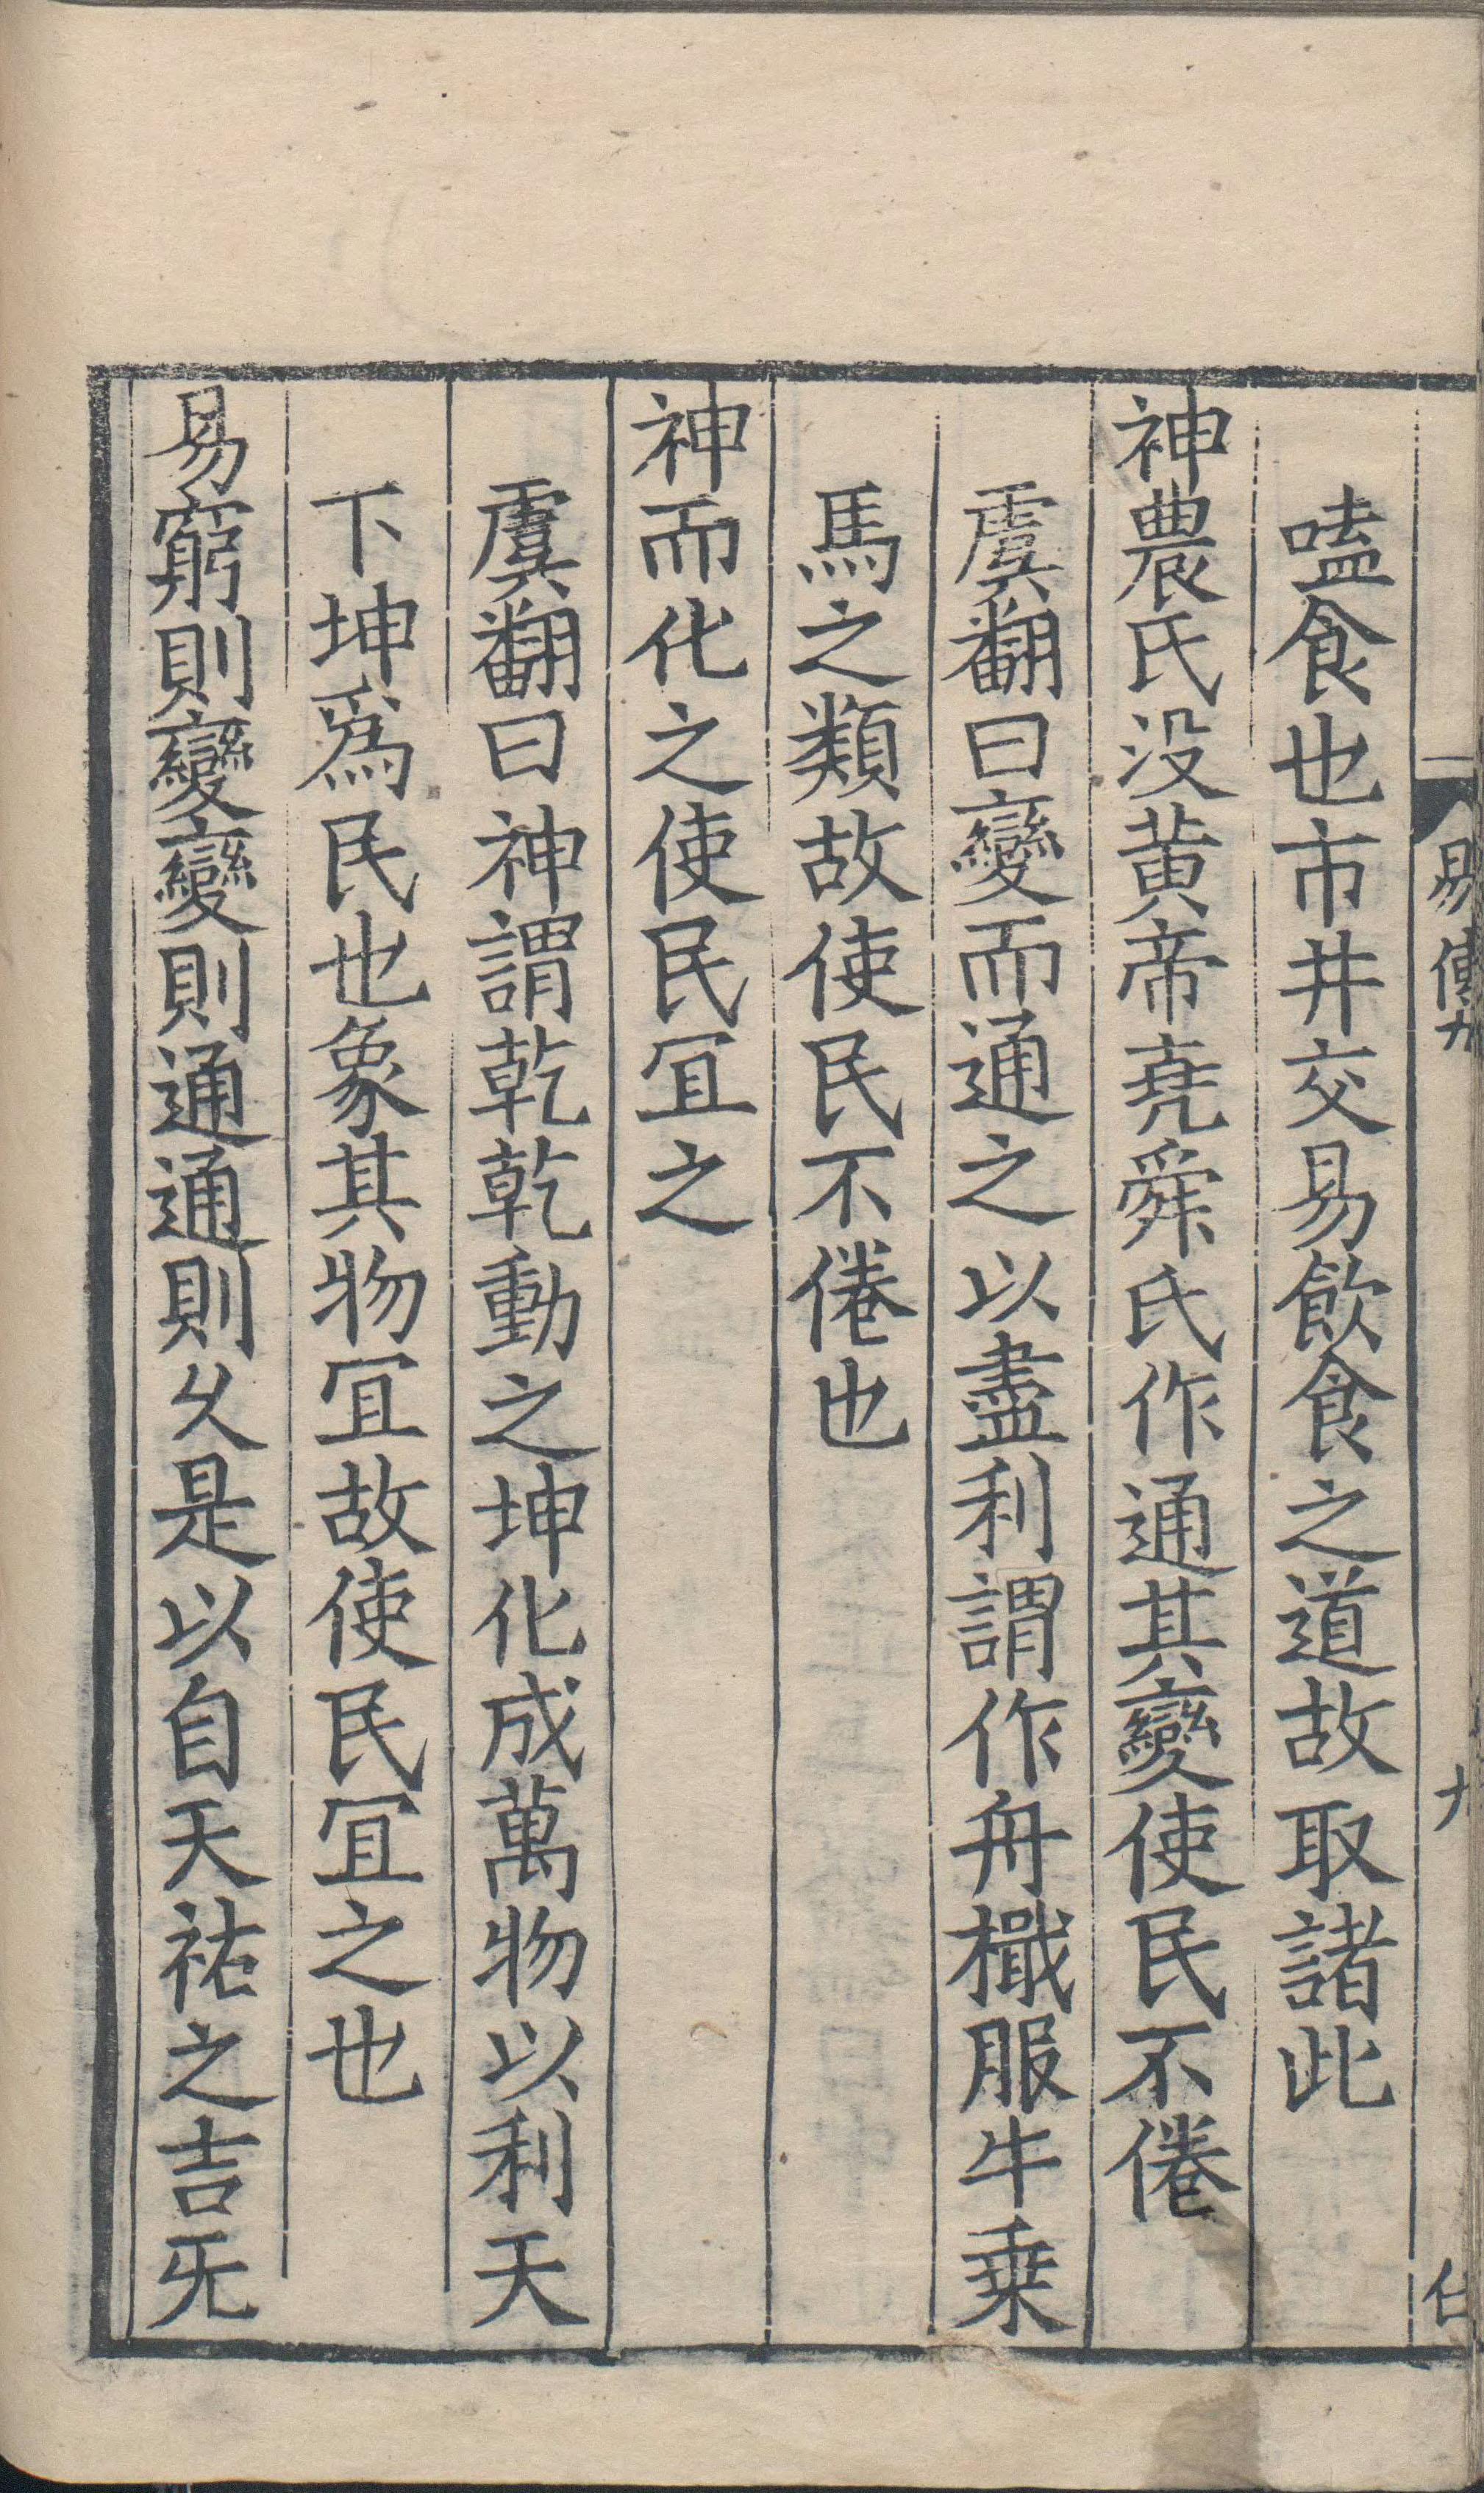 嗑食也市井交易飲食之道故取諸此
神農氏没黄帝堯舜氏作通其變使民不倦
虞翻曰變而通之以盡利謂作舟檝服牛乗
馬之類故使民不倦也
神而化之使民冝之
虞翻曰神謂乾乾動之坤化成萬物以利天
下坤爲民也象其物冝故使民冝之也
易窮則變變則通通則乆是以自天祐之吉旡